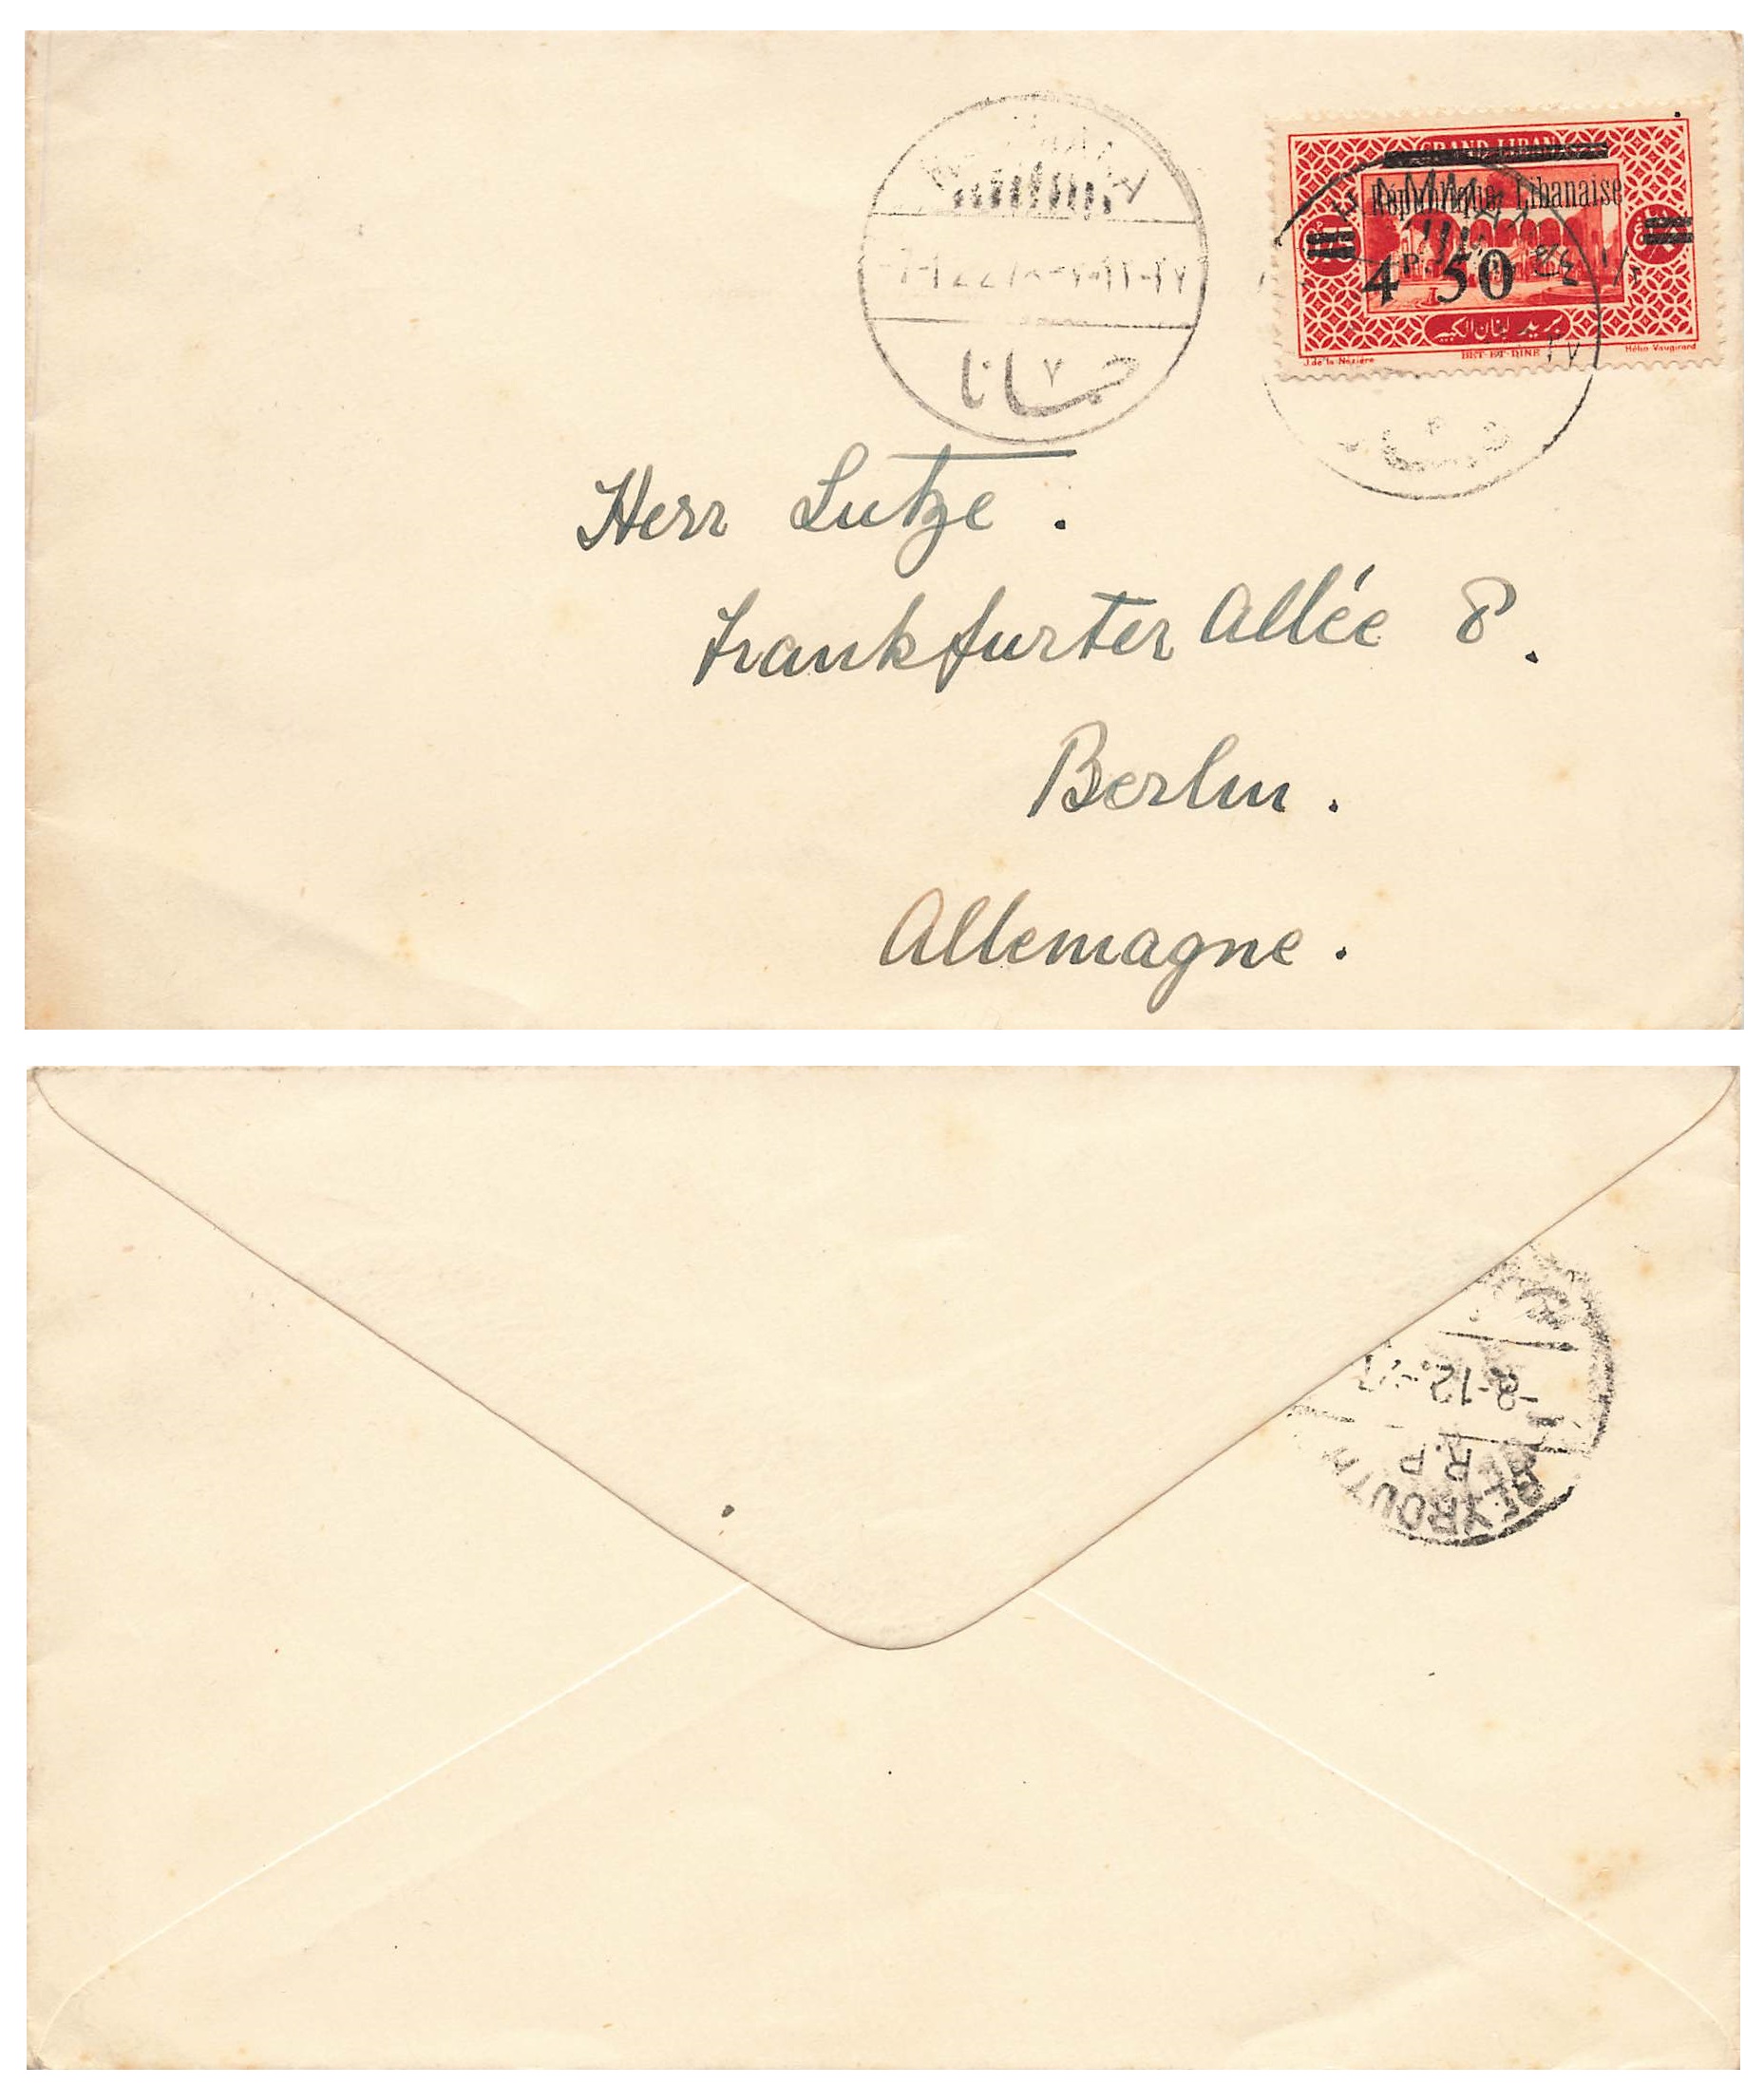 حمانا
٧
GRAND LIBAN
République Libanaise
4 P. 50
بريد لبنان الكبير
J. de la Nézière
BET-ET-DINE
Hélio Vaugirard
Herr Lutze.
Frankfurter Allée 8.
Berlin.
Allemagne.
-8-12
R.P
BEYROUTH